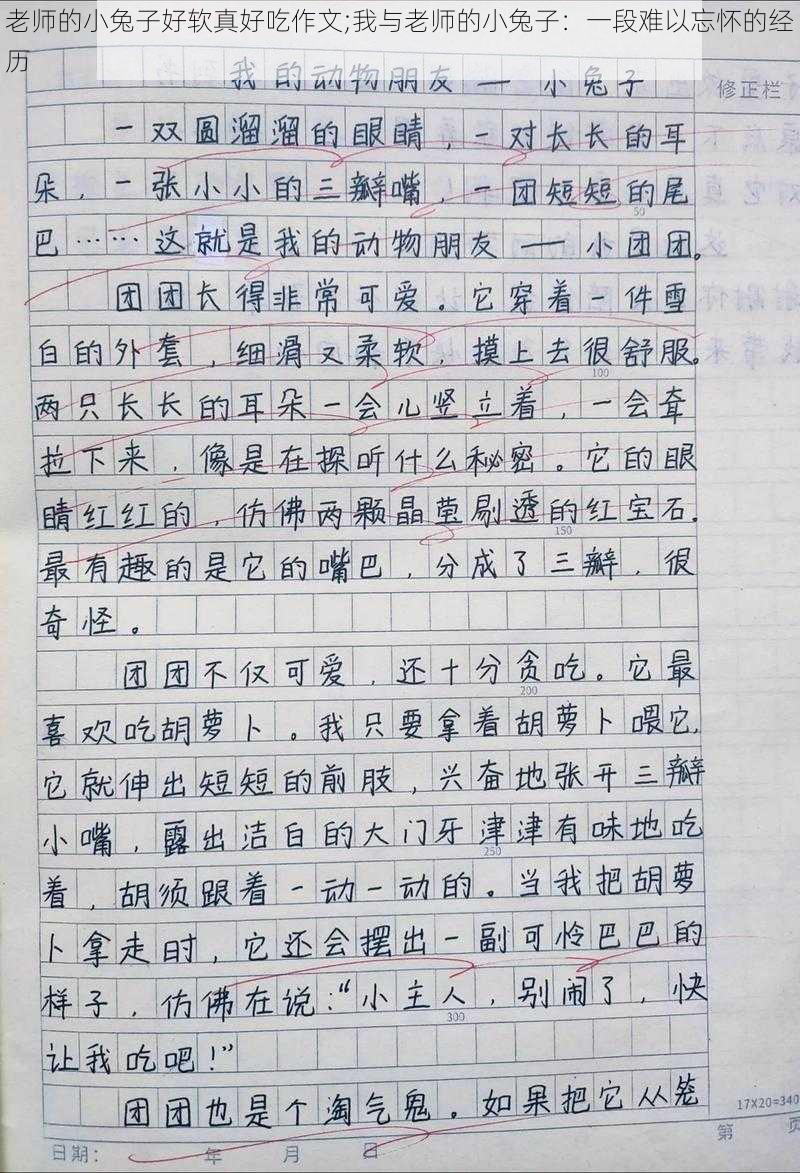 老师的小兔子好软真好吃作文;我与老师的小兔子：一段难以忘怀的经
历
我的动物朋友——小兔子
修正栏
一双圆溜溜的眼睛，一对长长的耳
朵，一张小小的三瓣嘴，一团短短的尾
50
巴……这就是我的动物朋友——小团团。
团团长得非常可爱。它穿着一件雪
白的外套，细滑又柔软，摸上去很舒服。
100
两只长长的耳朵一会儿竖立着，一会耷
拉下来，像是在探听什么秘密。它的眼
睛红红的，仿佛两颗晶莹剔透的红宝石。
150
最有趣的是它的嘴巴，分成了三瓣，很
奇怪。
团团不仅可爱，还十分贪吃。它最
200
喜欢吃胡萝卜。我只要拿着胡萝卜喂它，
它就伸出短短的前肢，兴奋地张开三瓣
小嘴，露出洁白的大门牙津津有味地吃
250
着，胡须跟着一动一动的。当我把胡萝
卜拿走时，它还会摆出一副可怜巴巴的
样子，仿佛在说：“小主人，别闹了，快
300
让我吃吧！”
团团也是个淘气鬼。如果把它从笼
17X20=340
日期： 年 月 日 第 页